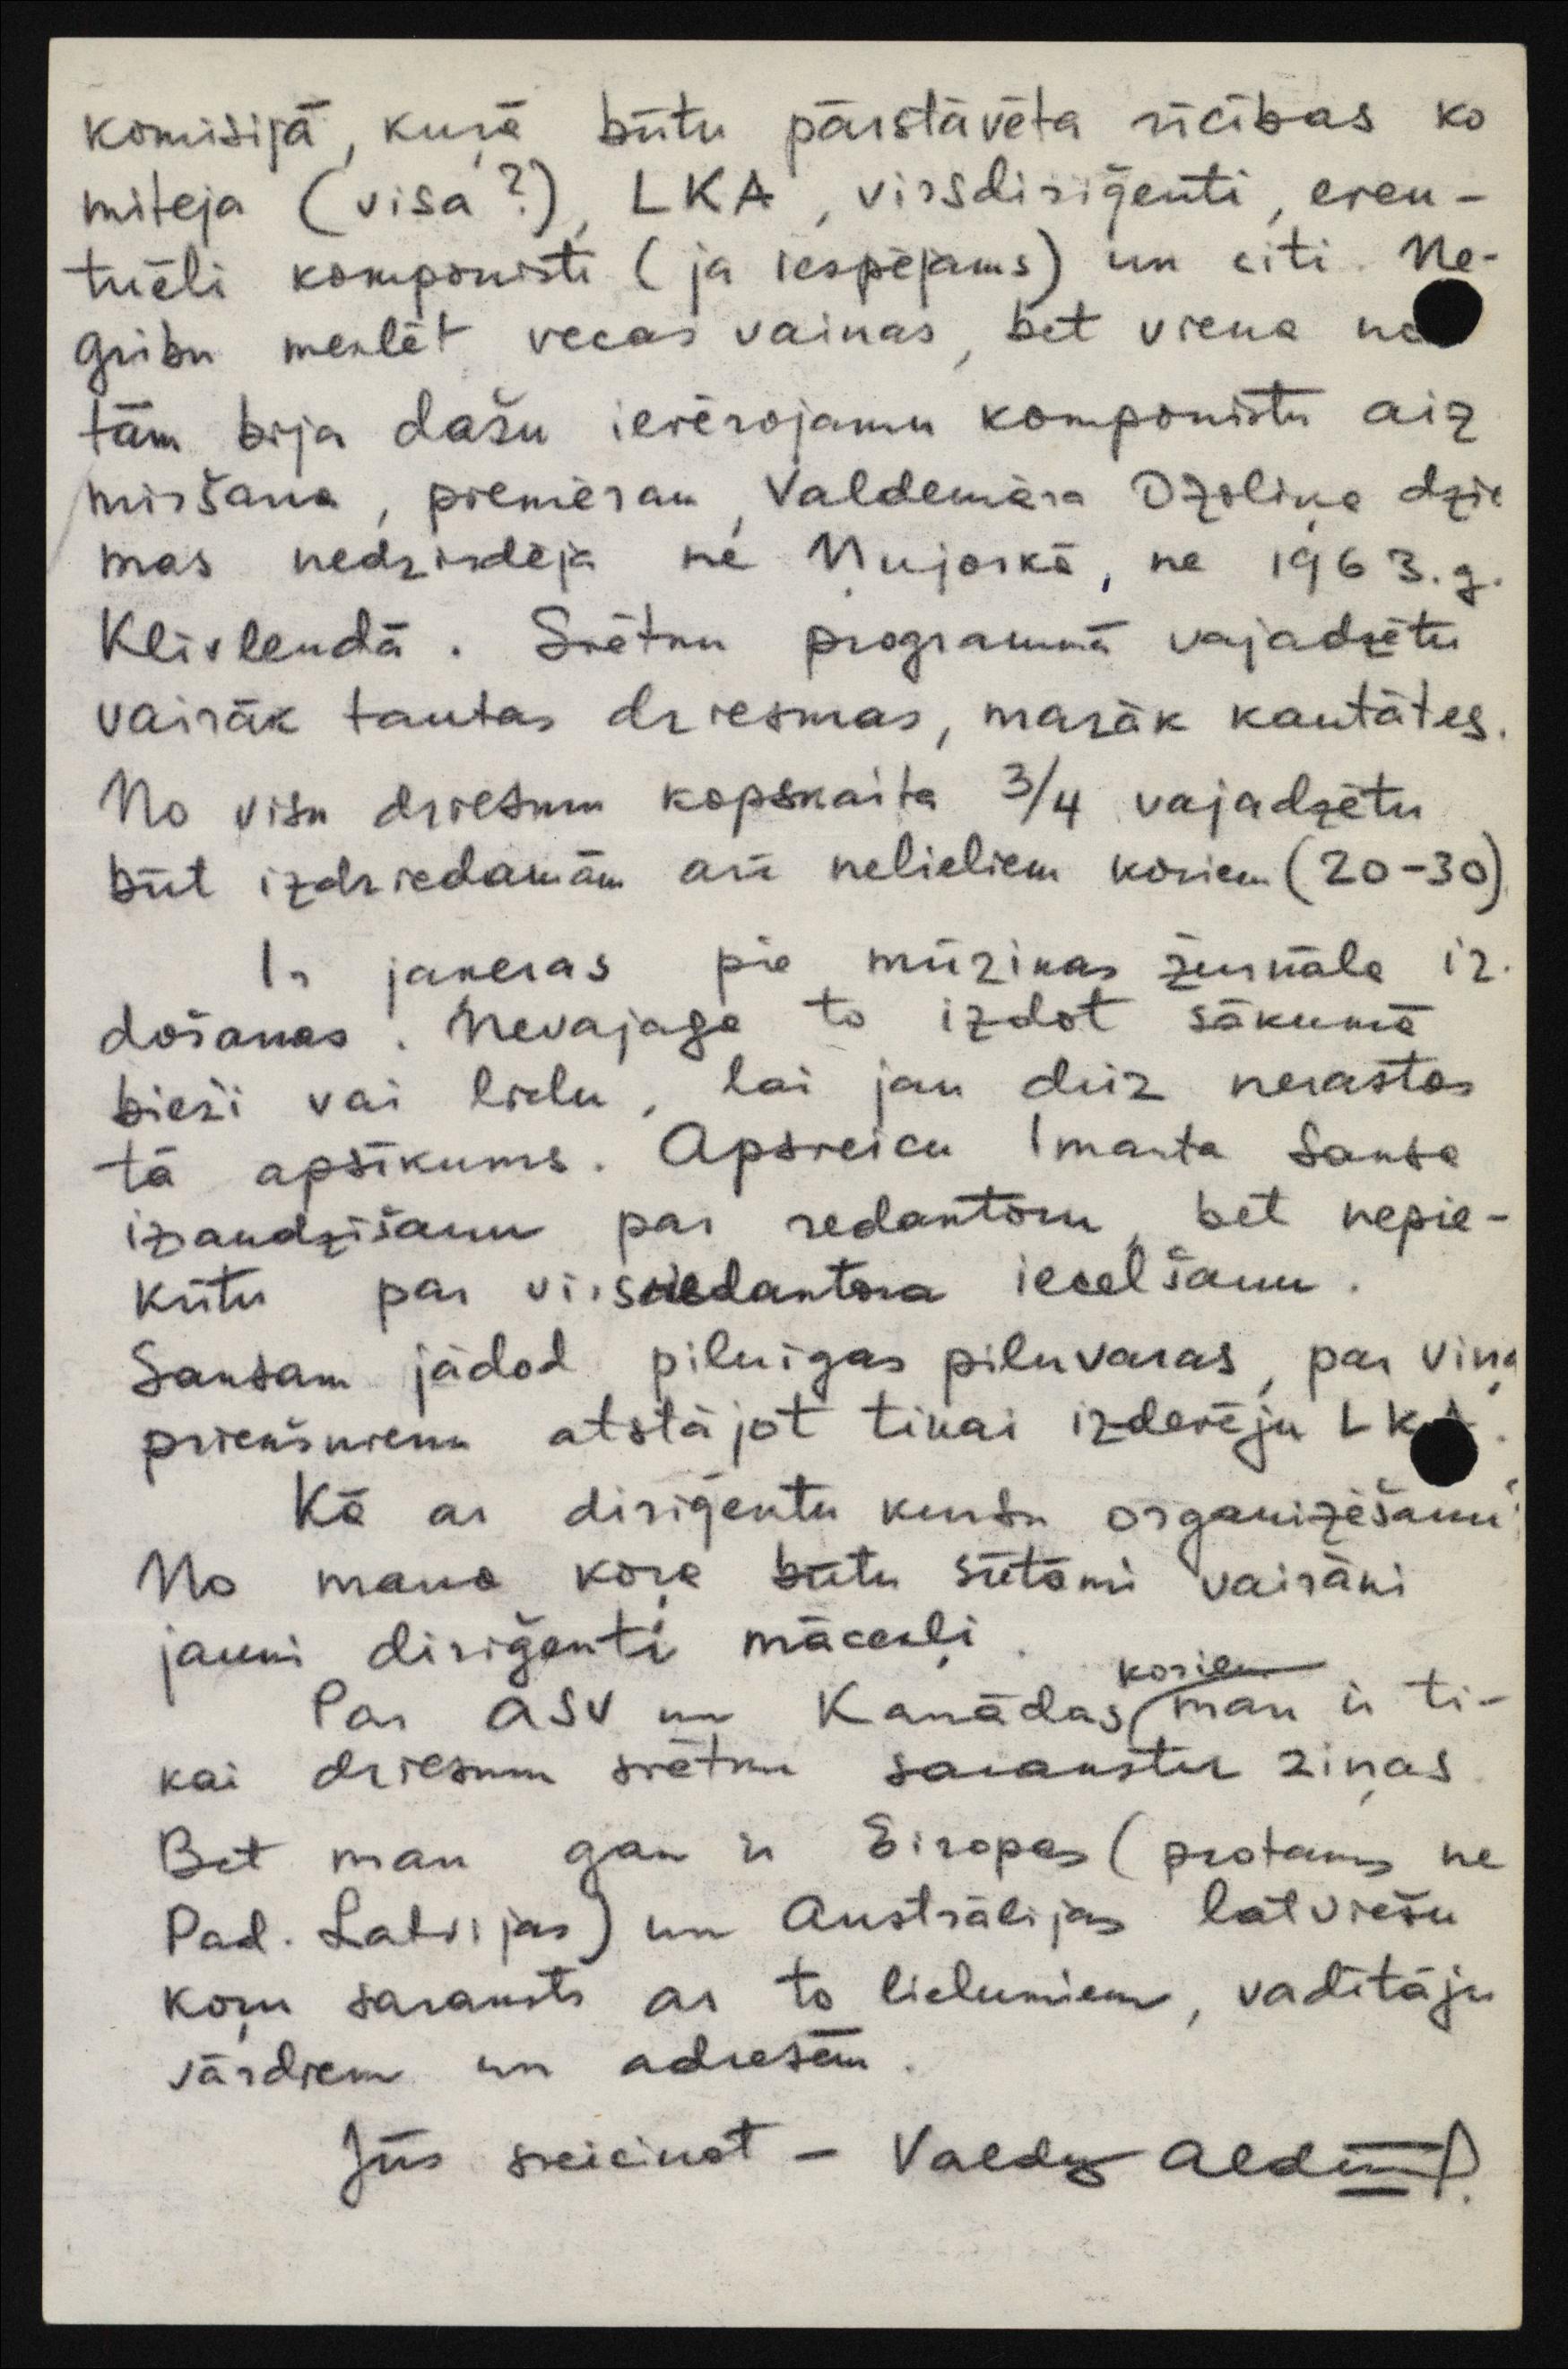 komisijā, kuŗā būtu pārstāvēta rīcības ko
miteja (visa?), LKA, virsdiriģenti, even-
tuēli komponisti (ja iespējams) un citi. Ne-
gribu meklēt vecas vainas, bet viena no
tām bija dažu ievērojamu komponistu aiz
miršana, piemēram, Valdemāra Ozoliņa dzie
mas nedzirdēja ne Ņujorkā, ne 1963. g.
Klīvlendā. Svētku programmā vajadzētu
vairāk tautas dziesmas, mazāk kantātes.
No visu dziesmu kopskaita 3/4 vajadzētu
būt izdziedamām arī nelieliem koriem (20-30)
Ir jaķeras pie mūzikas žurnāla iz-
došanas. Nevajaga to izdot sākumā
bieži vai lielu, lai jau drīz nerastos
tā apsīkums. Apsveicu Imanta Saksa
izraudzīšanu par redaktoru, bet nepie-
krītu par virsredaktora iecelšanu.
Saksam jādod pilnīgas pilnvaras, par viņa
priekšnieku atstājot tikai izdevēju LKA.
Kā ar diriģentu kursu organizēšanu?
No mana koŗa būtu sūtāmi vairāki
jauni diriģenti mācekļi.
koriem
Par ASV un Kanādas man ir ti-
kai dziesmu svētku sarakstu ziņas.
Bet man gan ir Eiropas (protams ne
Pad. Latvijas) un Austrālijas latviešu
koŗu saraksts ar to lielumiem, vadītāju
vārdiem un adresēm.
Jūs sveicinot -